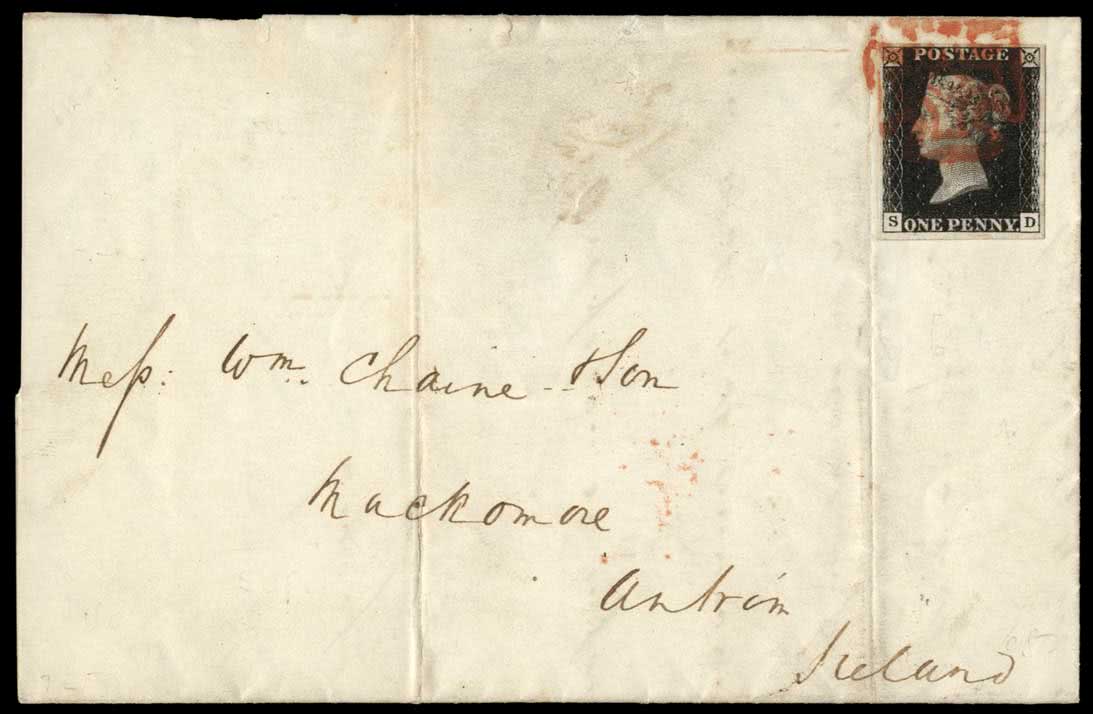 POSTAGE
S ONE PENNY. D
Mess: Wm. Chaine & Son
Muckomore
Antrim
Ireland